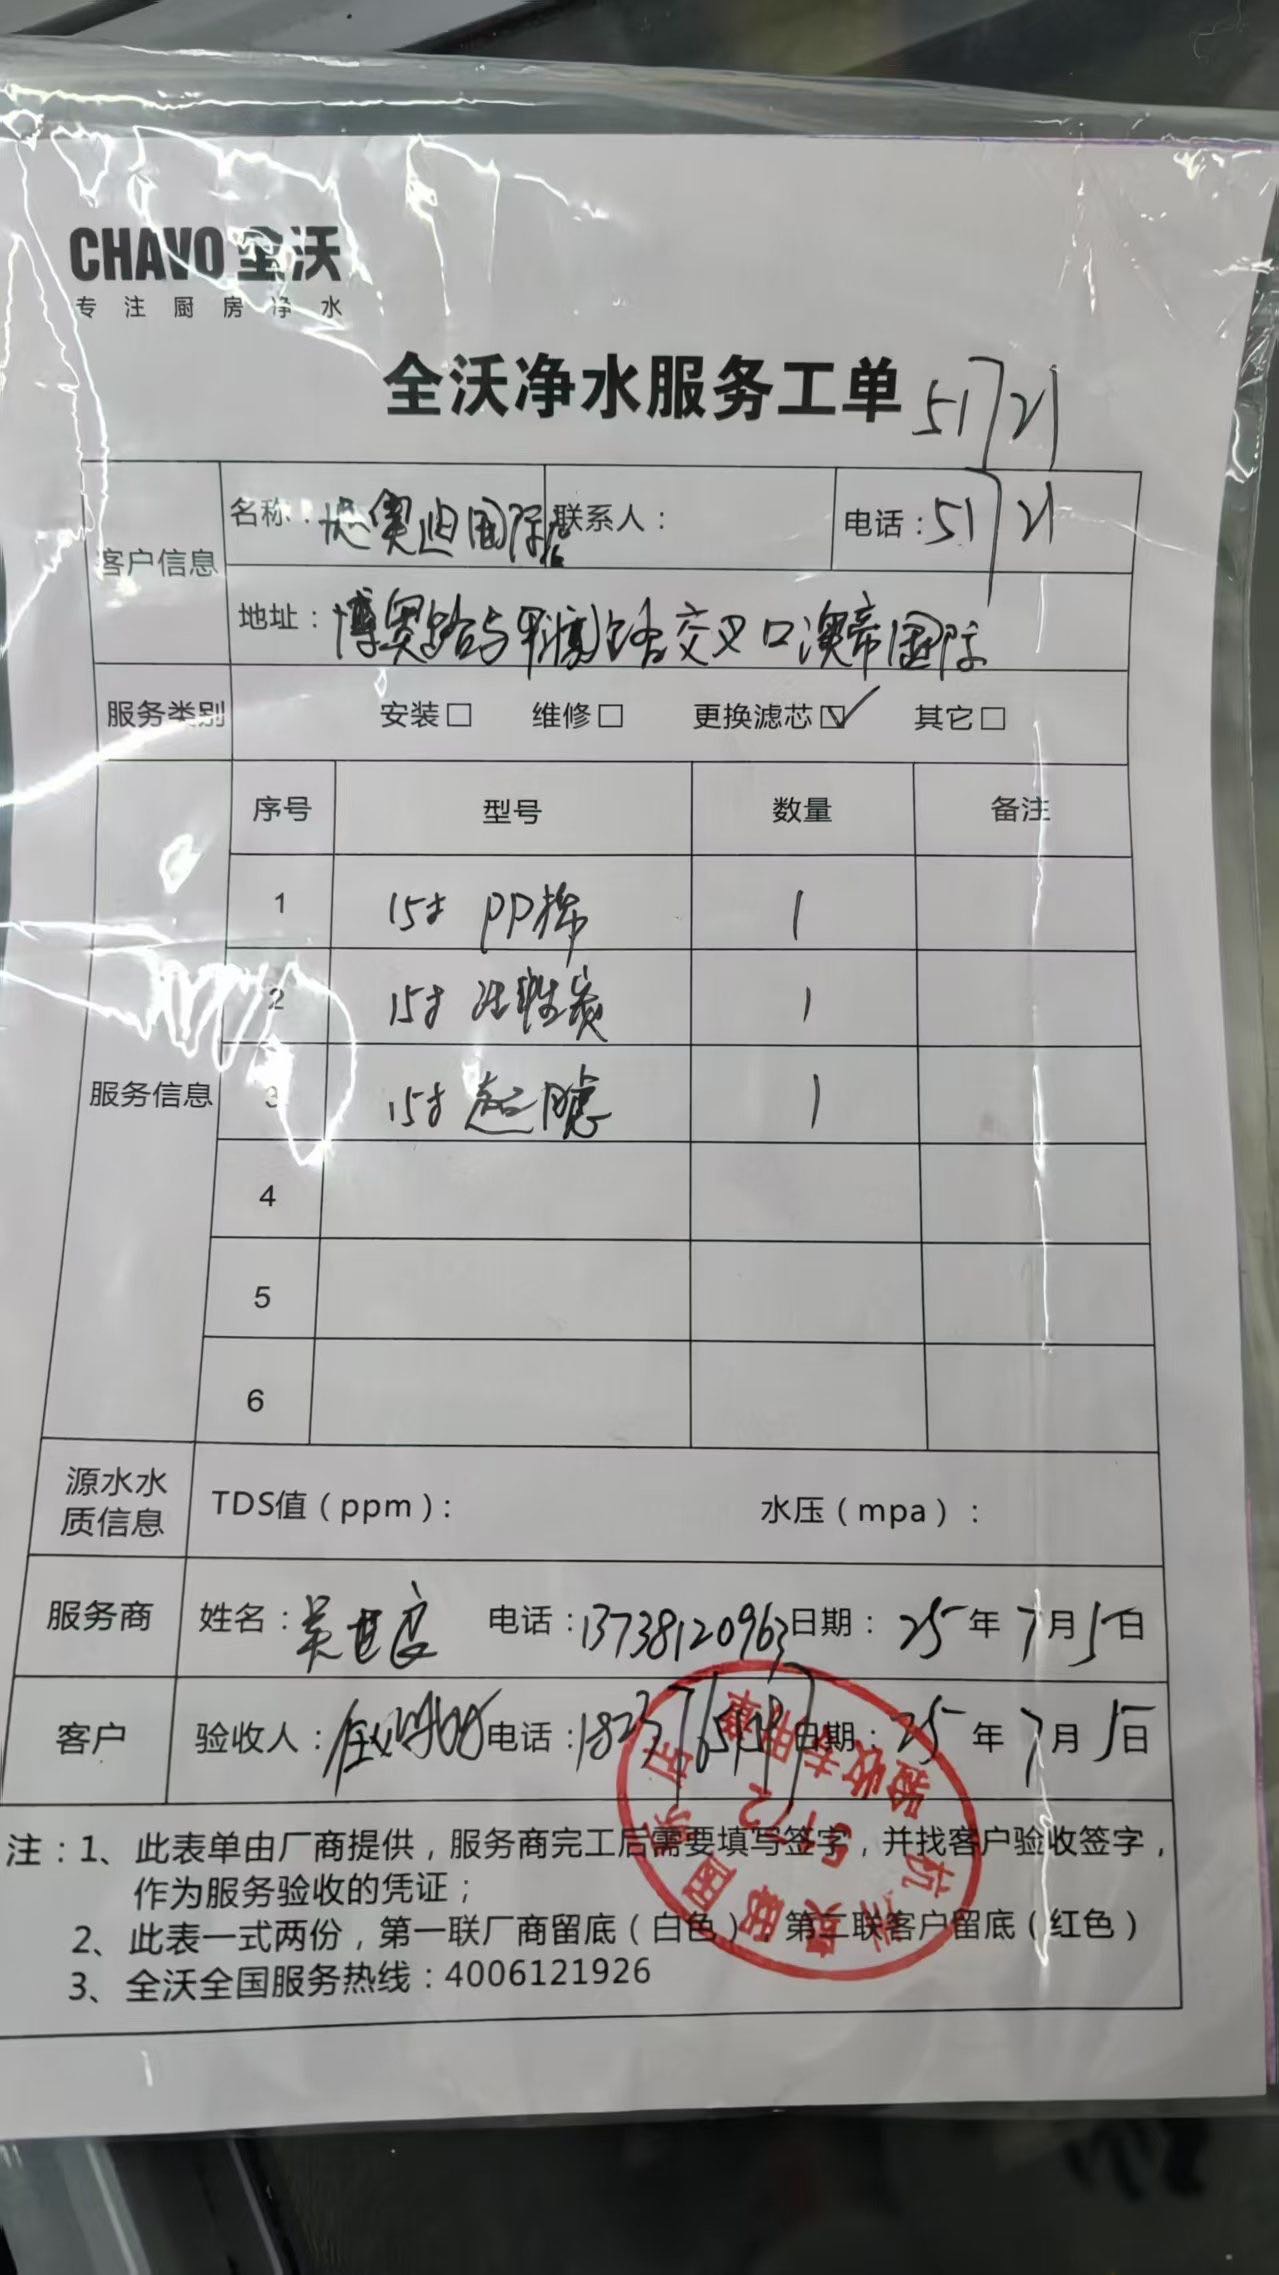 CHAVO 全沃
专注厨房净水
全沃净水服务工单 51721
客户信息
名称： 奥 国际店 联系人： 电话：51721
地址：博奥路与 路交叉口澳帝国际
服务类别 安装□ 维修□ 更换滤芯☑ 其它□
服务信息
序号 型号 数量 备注
1 15寸 PP棉 1
2 15寸 活性炭 1
3 15寸 超滤 1
4
5
6
源水水质信息 TDS值（ppm）： 水压（mpa）：
服务商 姓名：吴世良 电话：13738120963 日期：25年7月5日
客户 验收人： 电话： 日期：25年7月5日
注：1、此表单由厂商提供，服务商完工后需要填写签字，并找客户验收签字，
作为服务验收的凭证；
2、此表一式两份，第一联厂商留底（白色），第二联客户留底（红色）
3、全沃全国服务热线：4006121926
5172
验收专用章